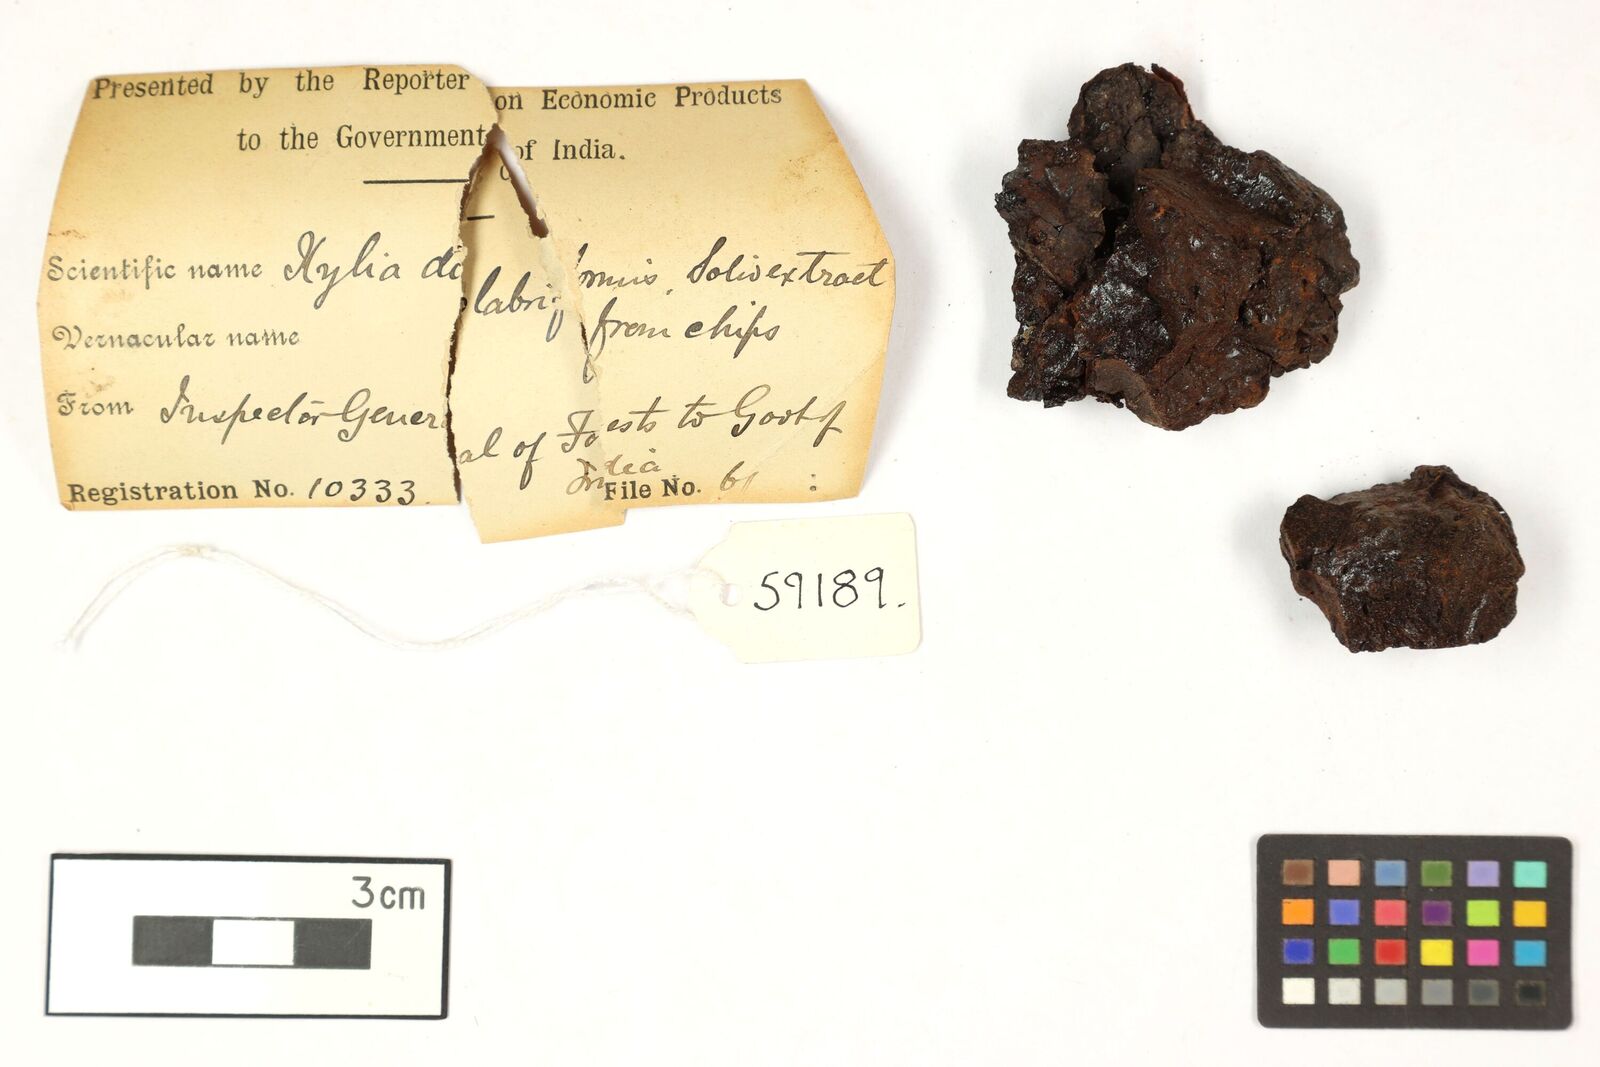 Presented by the Reporter on Economic Products
to the Government of India.
Scientific name Xylia dolabriformis, Solid extract
from chips
Vernacular name
From Inspector General of Forests to Govt of
India
Registration No. 10333. File No.
59189.
3cm